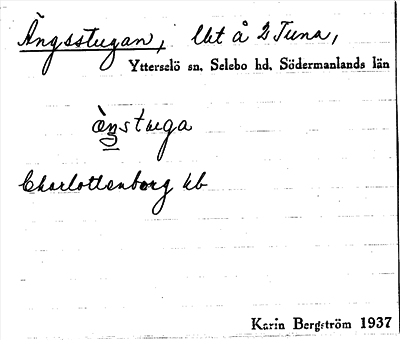 Ängsstugan, Utt å 2 Tuna,
Ytterselö sn, Selebo hd, Södermanlands län
ängstuga
Charlottenborg kb
Karin Bergström 1937